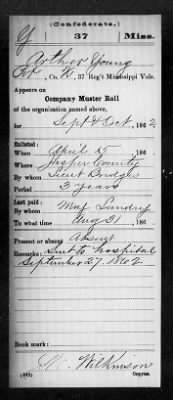 (Confederate.)
Y 37 Miss.
Arthur Young
Pvt, Co. H, 37 Reg't Mississippi Vols.
Appears on
Company Muster Roll
of the organization named above,
for Sept & Oct, 1862
Enlisted:
When April 25, 186
Where Jasper County
By whom Lieut Bridges
Period 3 years
Last paid:
By whom Maj Landry
To what time Aug 31, 186
Present or absent Absent
Remarks: Sent to hospital
September 27, 1862
Book mark:
Wilkinson
(642) Copyist.